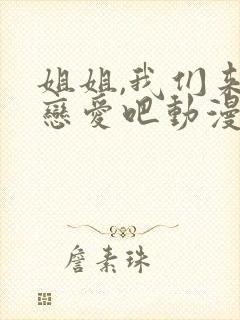 姐姐,我们来
戀愛吧動漫
詹素珠